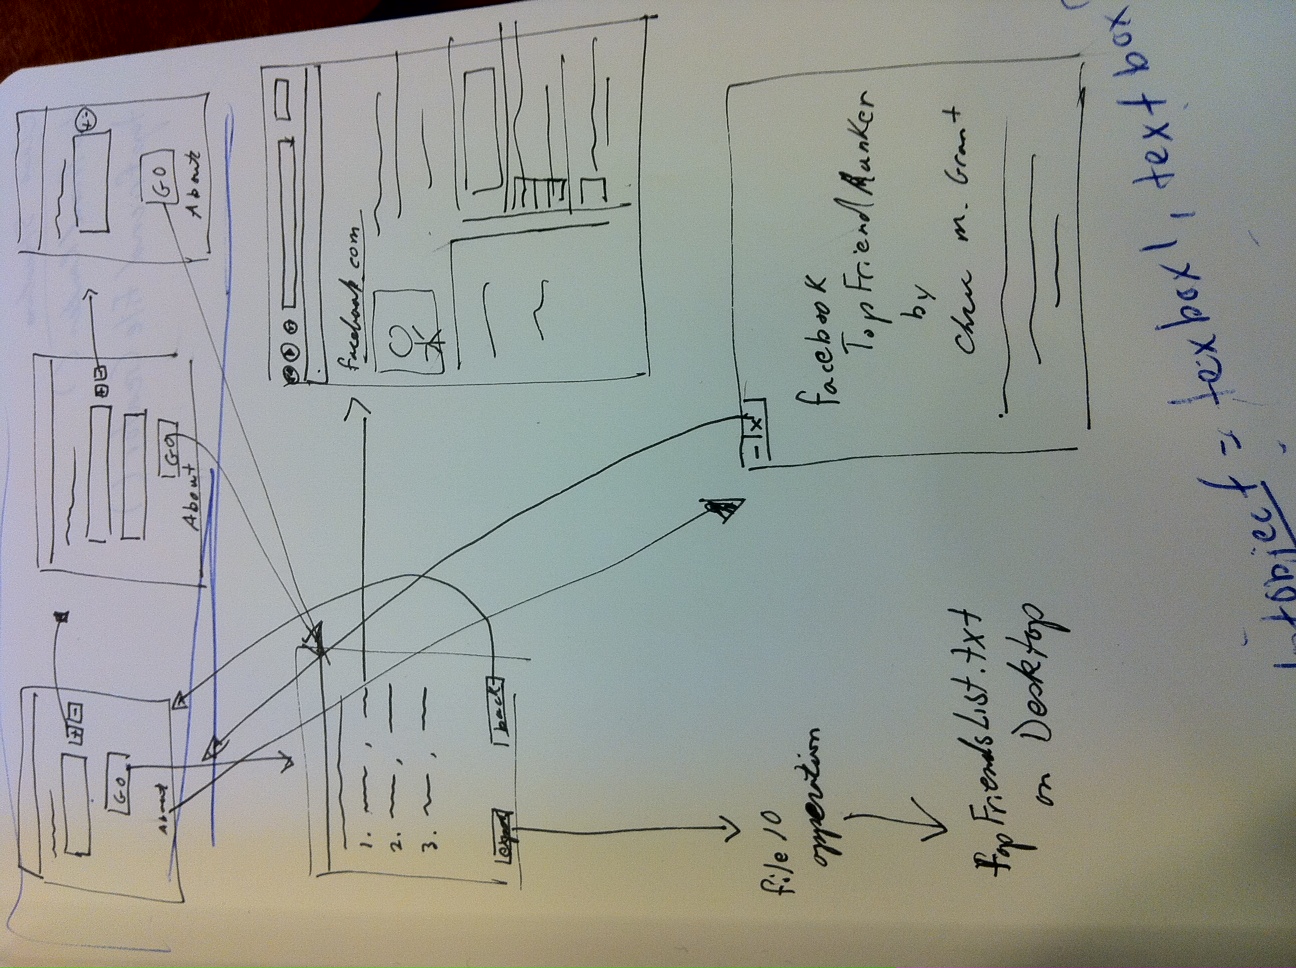 + -
GO
About
+ -
GO
About
+ -
GO
About
1.
2.
3.
export
back
facebook.com
file IO
opperation
topFriendsList.txt
on Desktop
- x
facebook
TopFriendRanker
by
M. Grant
= texbox1, textbox